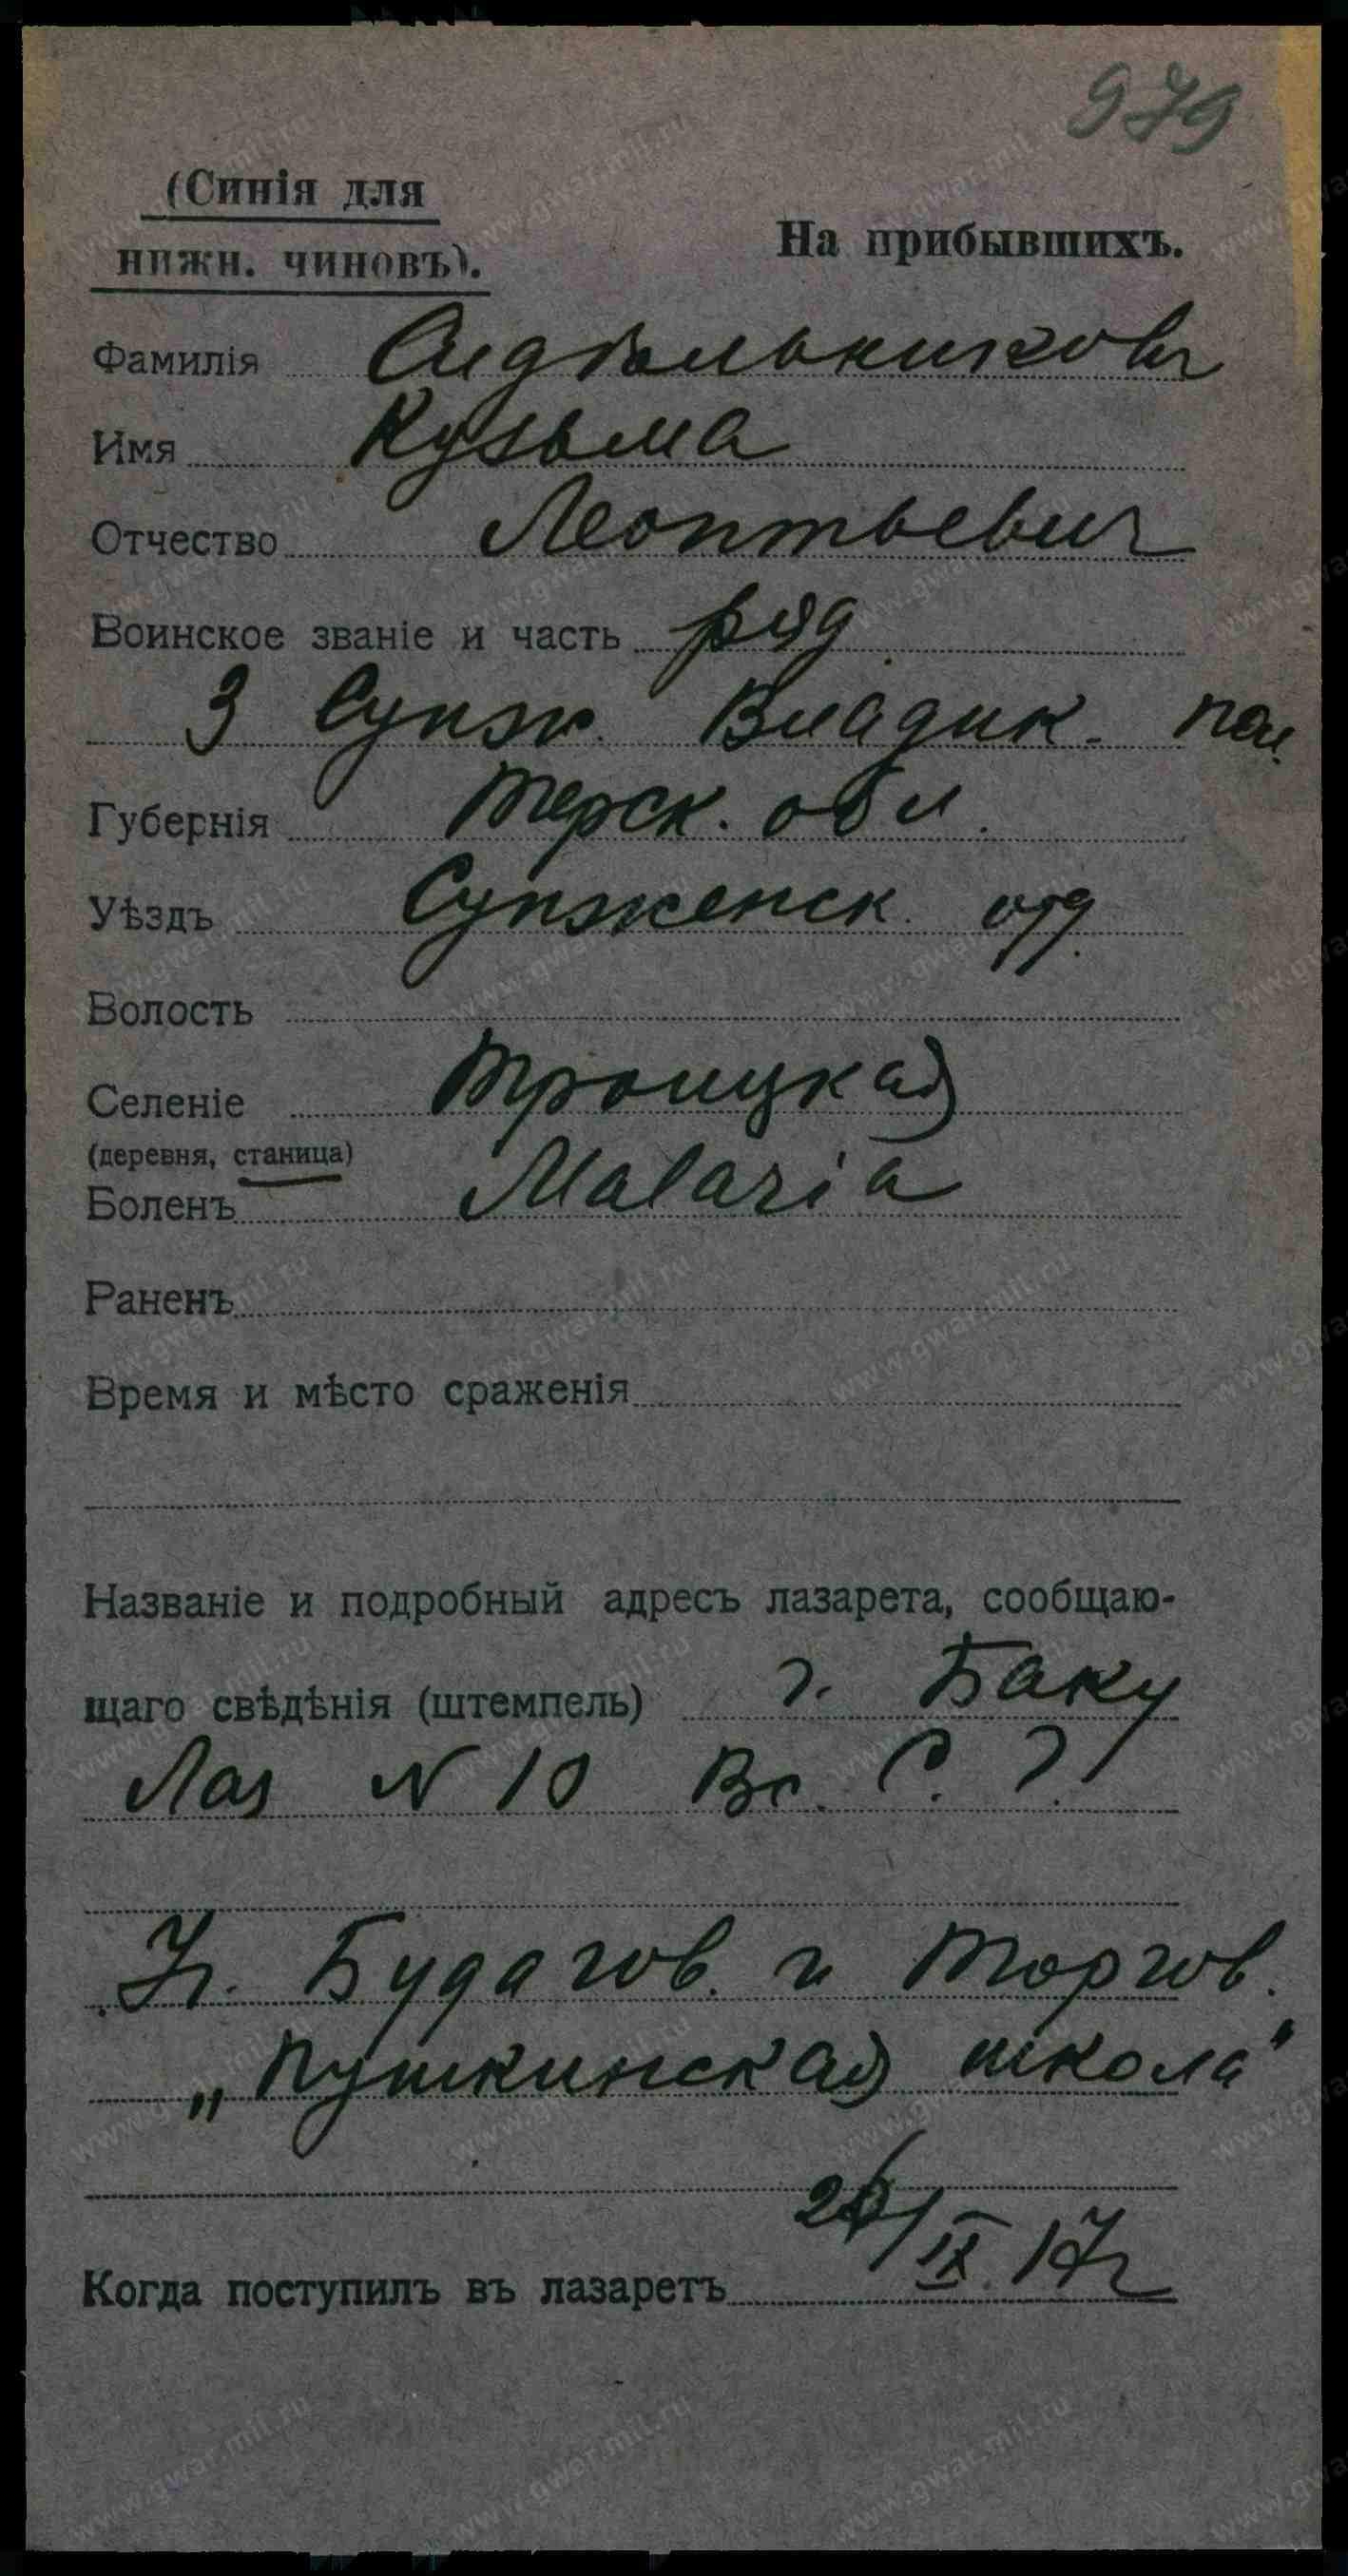 979
(Синія для
нижн. чиновъ).
На прибывшихъ.
Фамилія Сидѣльниковъ
Имя Кузьма
Отчество Леонтьевич
Воинское званіе и часть ряд
3 Сунж. Владик. пол.
Губернія Терск. обл.
Уѣздъ Сунженск. отд.
Волость
Селеніе Троицкая
(деревня, станица)
Боленъ Malaria
Раненъ
Время и мѣсто сраженія
Названіе и подробный адресъ лазарета, сообщаю-
щаго свѣдѣнія (штемпель) г. Баку
Лаз N 10 Вс. С. Г.
Уг. Будагов. и Торгов.
„Пушкинская школа"
Когда поступилъ въ лазаретъ /IX 17г